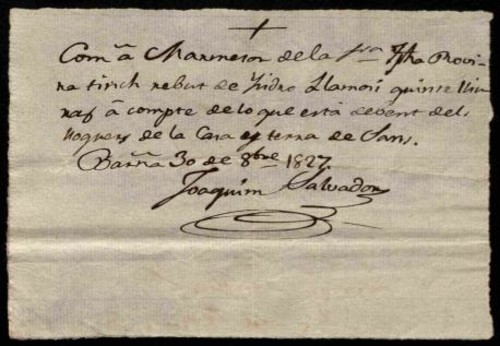 Com â Marmesor de la Sra
na tinch rebut de Isidro Llamosi quinse lliu
ras â compte de lo que está debent dels
lloguers de la Casa y terra de Sans.
Barña 30 de 8bre 1827.
Joaquim Salvador